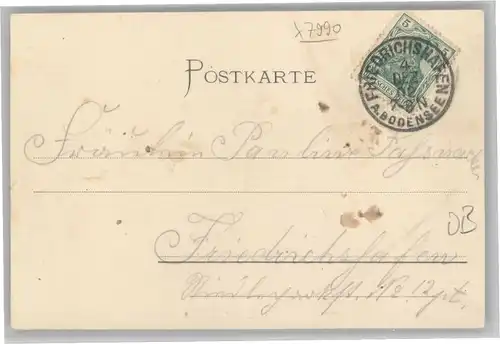 x7990
5 5
FRIEDRICHSHAFEN
4
DEZ
A. BODENSEE
POSTKARTE
Fräulein Pauline
DB
Friedrichshafen
No. 12 pt.